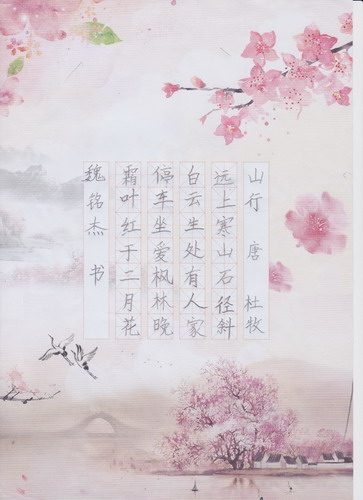 山行 唐 杜牧
远上寒山石径斜
白云生处有人家
停车坐爱枫林晚
霜叶红于二月花
魏铭杰 书